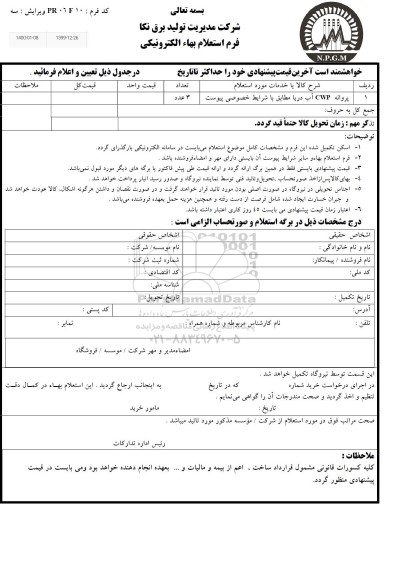 بسمه تعالی
کد فرم : PR ۰۶ F ۱۰ ویرایش : سه
1400-01-08 1399-12-26
شرکت مدیریت تولید برق نکا
فرم استعلام بهاء الکترونیکی
N.P.G.M
خواهشمند است آخرین قیمت پیشنهادی خود را حداکثر تاتاریخ درجدول ذیل تعیین و اعلام فرمائید .
ردیف شرح کالا یا خدمات مورد استعلام تعداد قیمت واحد قیمت کل ملاحظات
۱ پروانه CWP آب دریا مطابق با شرایط خصوصی پیوست ۳ عدد
جمع کل به حروف:
تذکر مهم : زمان تحویل کالا حتماً قید گردد.
توضیحات:
۱- اسکن تکمیل شده این فرم و مشخصات کامل موضوع استعلام می‌بایست در سامانه الکترونیکی بارگذاری گردد.
۲- فرم استعلام بهاءو سایر شرایط پیوست آن بایستی دارای مهر و امضاءفروشنده باشد .
۳- قیمت پیشنهادی بایستی فقط در همین برگ ارائه گردد و ارائه قیمت طی پیش فاکتور یا برگه های دیگر مورد قبول نمی‌باشد.
۴- بهای‌کالاپس‌ازاخذ صورتحساب ،تحویل‌وتائید فنی توسط نماینده نیروگاه و صدور رسید انبار پرداخت خواهد شد .
۵- اجناس تحویلی در نیروگاه در صورت اصلی بودن مورد تائید قرار خواهند گرفت و در صورت نقصان و داشتن هرگونه اشکال، کالا عودت خواهد شد
و جبران خسارت ایجاد شده شامل فرصت از دست رفته و همچنین هزینه حمل بعهده فروشنده می‌باشد .
۶- اعتبار زمان قیمت پیشنهادی می بایست ۴۵ روز کاری اعتبار داشته باشد.
درج مشخصات ذیل در برگه استعلام و صورتحساب الزامی است :
اشخاص حقیقی اشخاص حقوقی
نام و نام خانوادگی : نام موسسه/ شرکت :
نام فروشنده / پیمانکار: شماره ثبت شرکت :
کد ملی: کد اقتصادی:
شناسه ملی:
تاریخ تکمیل : تاریخ تحویل:
آدرس: کد پستی :
تلفن : نام کارشناس مربوطه و شماره همراه : نمابر :
۰۲۱-۸۸۳۴۹۶۷۰-۵
امضاءمدیر و مهر شرکت / موسسه / فروشگاه
این قسمت توسط نیروگاه تکمیل خواهد شد .
در اجرای درخواست خرید شماره که در تاریخ به اینجانب ارجاع گردید . این استعلام بهاء در کمال دقت
تنظیم و اخذ گردید و صحت مندرجات آن را گواهی می‌نمایم .
تاریخ : مامور خرید
صحت مراتب فوق در مورد استعلام از شرکت / مؤسسه مذکور مورد تائید میباشد .
رئیس اداره تدارکات
ملاحظات :
کلیه کسورات قانونی مشمول قرارداد ساخت ، اعم از بیمه و مالیات و ... بعهده انجام دهنده خواهد بود ومی بایست در قیمت
پیشنهادی منظور گردد.